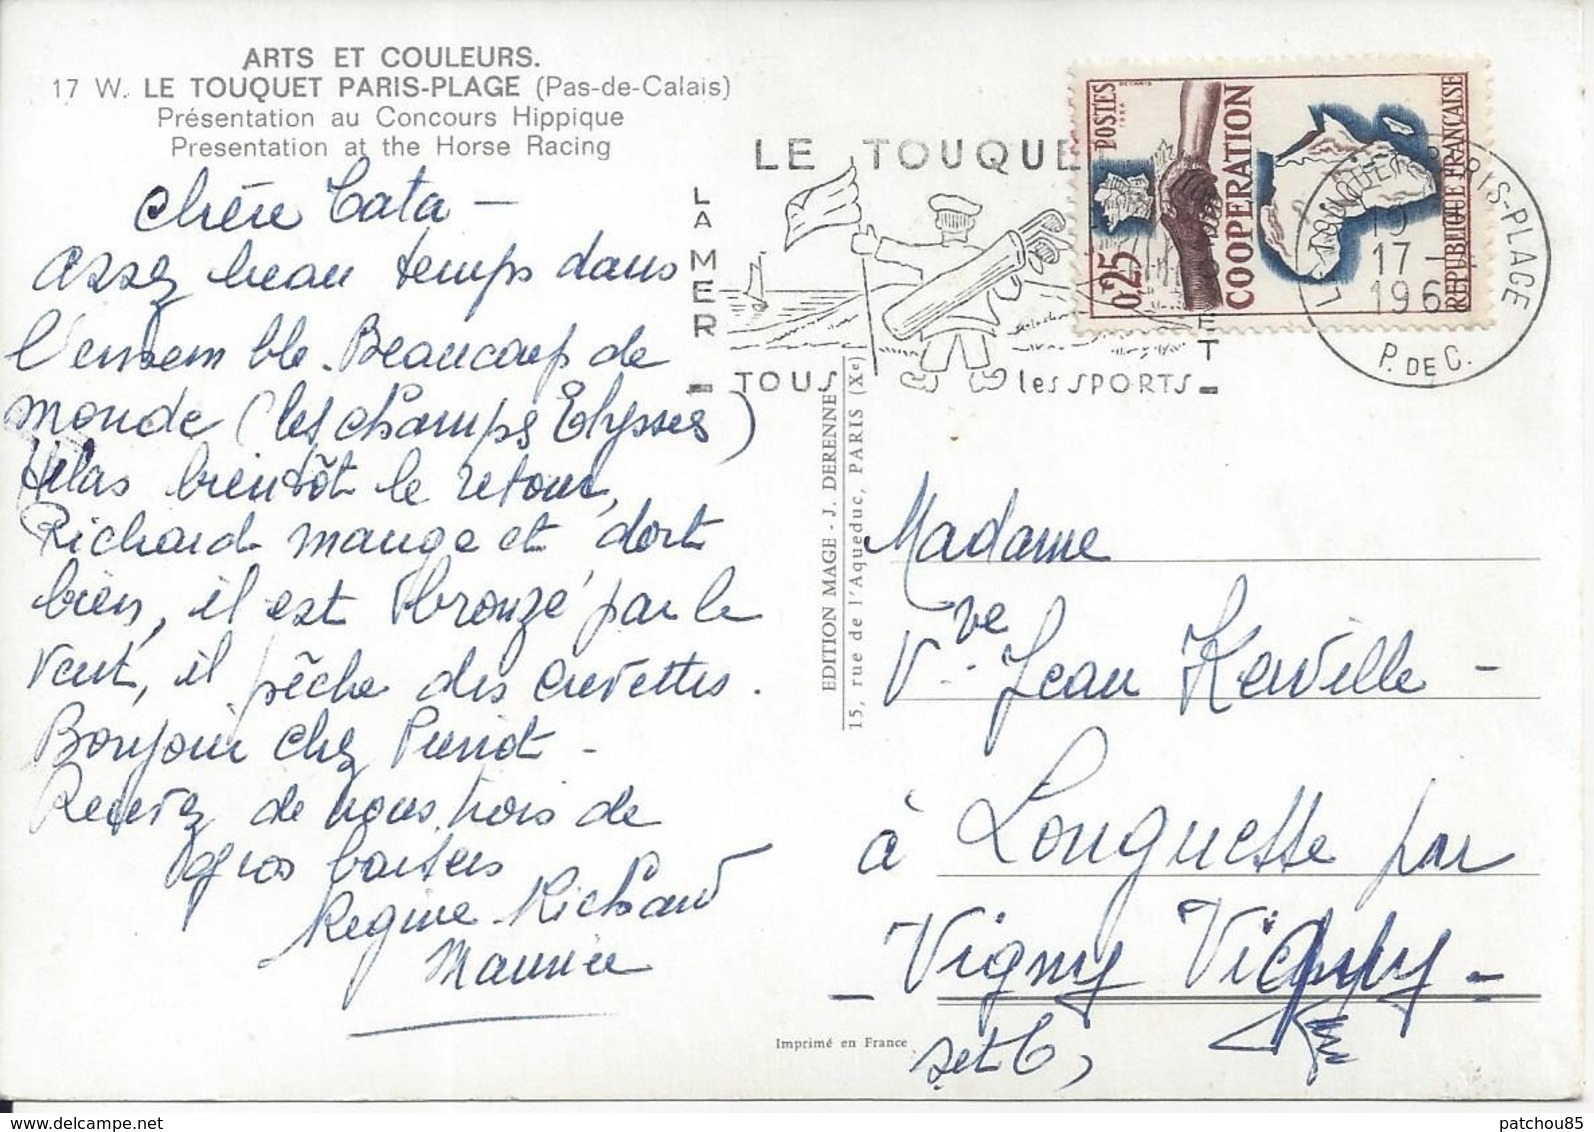 ARTS ET COULEURS.
17 W. LE TOUQUET PARIS-PLAGE (Pas-de-Calais)
Présentation au Concours Hippique
Presentation at the Horse Racing
Chère Tata -
assez beau temps dans
l'ensemble. Beaucoup de
monde (les champs Elysses)
Hélas bientôt le retour,
Richard mange et dort
bien, il est bronzé par le
vent, il pêche des crevettes.
Bonjour chez
Recevez de nous trois de
gros baisers
Regine Richard
Maurice
LE TOUQUE
LA MER
ET
= TOUS les SPORTS =
POSTES
DECARIS
1964
0,25
COOPERATION
REPUBLIQUE FRANÇAISE
LE TOUQUET-PARIS-PLAGE
19
17 -
196
P. DE C.
EDITION MAGE - J. DERENNE
15, rue de l'Aqueduc, PARIS (Xe)
Madame
Vve Jean Kerville -
à Longuesse par
- Vigny Vigny -
set O,
Imprimé en France
patchou85